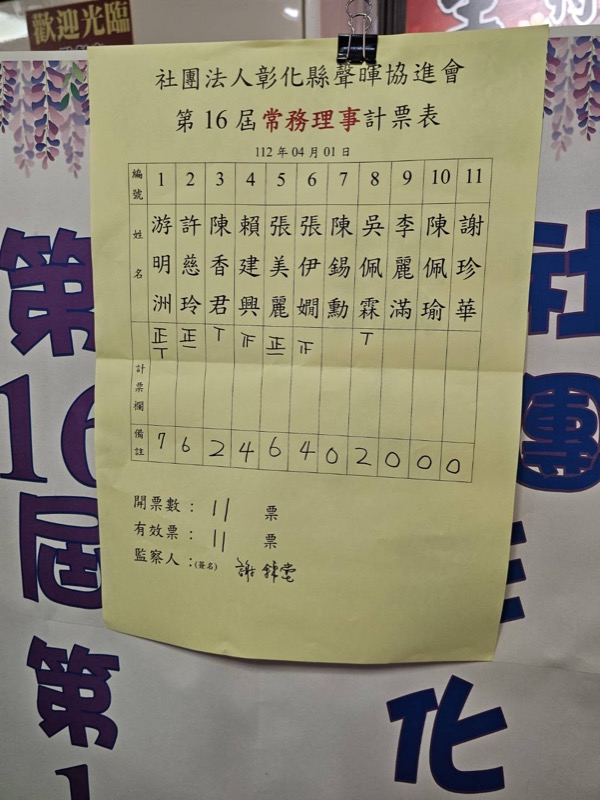 歡迎光臨
社團法人彰化縣聲暉協進會
第16屆常務理事計票表
112年04月01日
編號 1 2 3 4 5 6 7 8 9 10 11
姓名 游明洲 許慈玲 陳香君 賴建興 張美麗 張伊嫺 陳錫勳 吳佩霖 李麗滿 陳佩瑜 謝珍華
計票欄 正丅 正一 丅 正一 
備註 7 6 2 4 6 4 0 2 0 0 0
開票數：11 票
有效票：11 票
監察人：(簽名) 謝
第16屆第1
社團
化